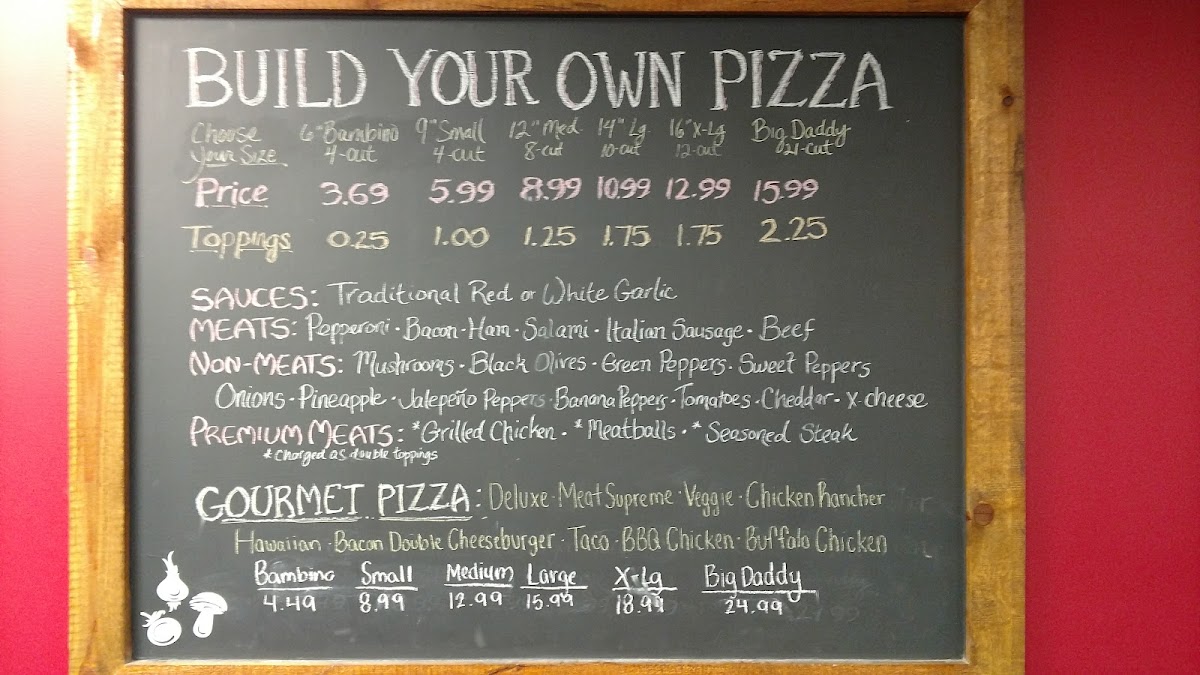 BUILD YOUR OWN PIZZA
Choose 6" Bambino 9" Small 12" Med. 14" Lg. 16" X-Lg Big Daddy
Your Size 4-cut 4-cut 8-cut 10-cut 12-cut 21-cut
Price 3.69 5.99 8.99 10.99 12.99 15.99
Toppings 0.25 1.00 1.25 1.75 1.75 2.25
SAUCES: Traditional Red or White Garlic
MEATS: Pepperoni · Bacon · Ham · Salami · Italian Sausage · Beef
NON-MEATS: Mushrooms · Black Olives · Green Peppers · Sweet Peppers
Onions · Pineapple · Jalepeño Peppers · Banana Peppers · Tomatoes · Cheddar · X-cheese
PREMIUM MEATS: *Grilled Chicken · *Meatballs · *Seasoned Steak
* Charged as double toppings
GOURMET PIZZA: Deluxe · Meat Supreme · Veggie · Chicken Rancher
Hawaiian · Bacon Double Cheeseburger · Taco · BBQ Chicken · Buffalo Chicken
Bambino Small Medium Large X-Lg Big Daddy
4.49 8.99 12.99 15.99 18.99 24.99